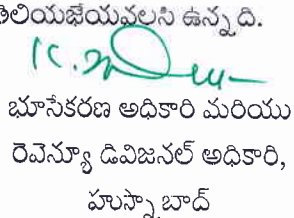 తెలియజేయవలసి ఉన్నది.
భూసేకరణ అధికారి మరియు
రెవెన్యూ డివిజనల్ అధికారి,
హుస్నాబాద్